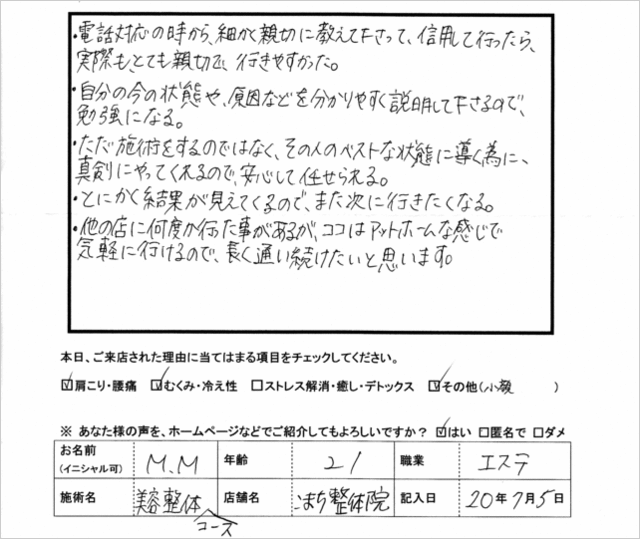 ・電話対応の時から、細かく親切に教えて下さって、信用して行ったら、
実際も、とても親切で、行きやすかった。
・自分の今の状態や、原因などを分かりやすく説明して下さるので、
勉強になる。
・ただ施術をするのではなく、その人のベストな状態に導く為に、
真剣にやってくれるので、安心して任せられる。
・とにかく結果が見えてくるので、また次に行きたくなる。
・他の店に何度か行った事があるが、ココはアットホームな感じで
気軽に行けるので、長く通い続けたいと思います。
本日、ご来店された理由に当てはまる項目をチェックしてください。
☑肩こり・腰痛 ☑むくみ・冷え性 □ストレス解消・癒し・デトックス ☑その他(小顔 )
※ あなた様の声を、ホームページなどでご紹介してもよろしいですか? ☑はい □匿名で □ダメ
お名前 (イニシャル可) M.M 年齢 21 職業 エステ
施術名 美容整体コース 店舗名 こまち整体院 記入日 20年7月5日